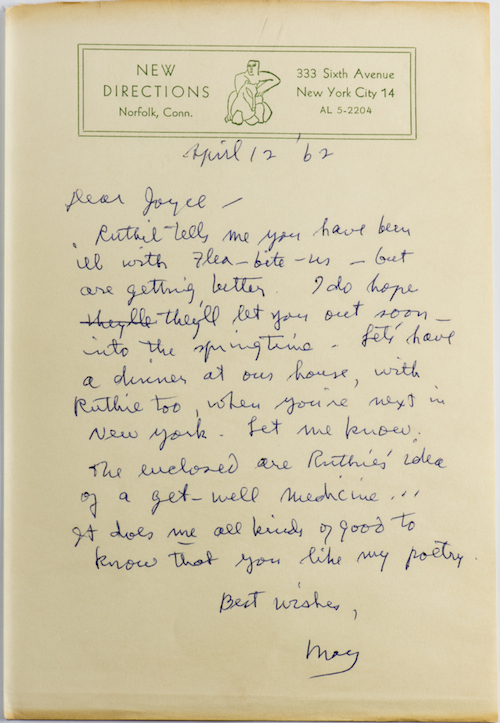 NEW
DIRECTIONS
Norfolk, Conn.
333 Sixth Avenue
New York City 14
AL 5-2204
April 12 '62
Dear Joyce –
Ruthie tells me you have been
ill with Flea-bite-us – but
are getting better. I do hope
theylle they'll let you out soon –
into the springtime. Let's have
a dinner at our house, with
Ruthie too, when you're next in
New York. Let me know.
The enclosed are Ruthie's idea
of a get-well medicine...
It does me all kinds of good to
know that you like my poetry.
Best wishes,
May